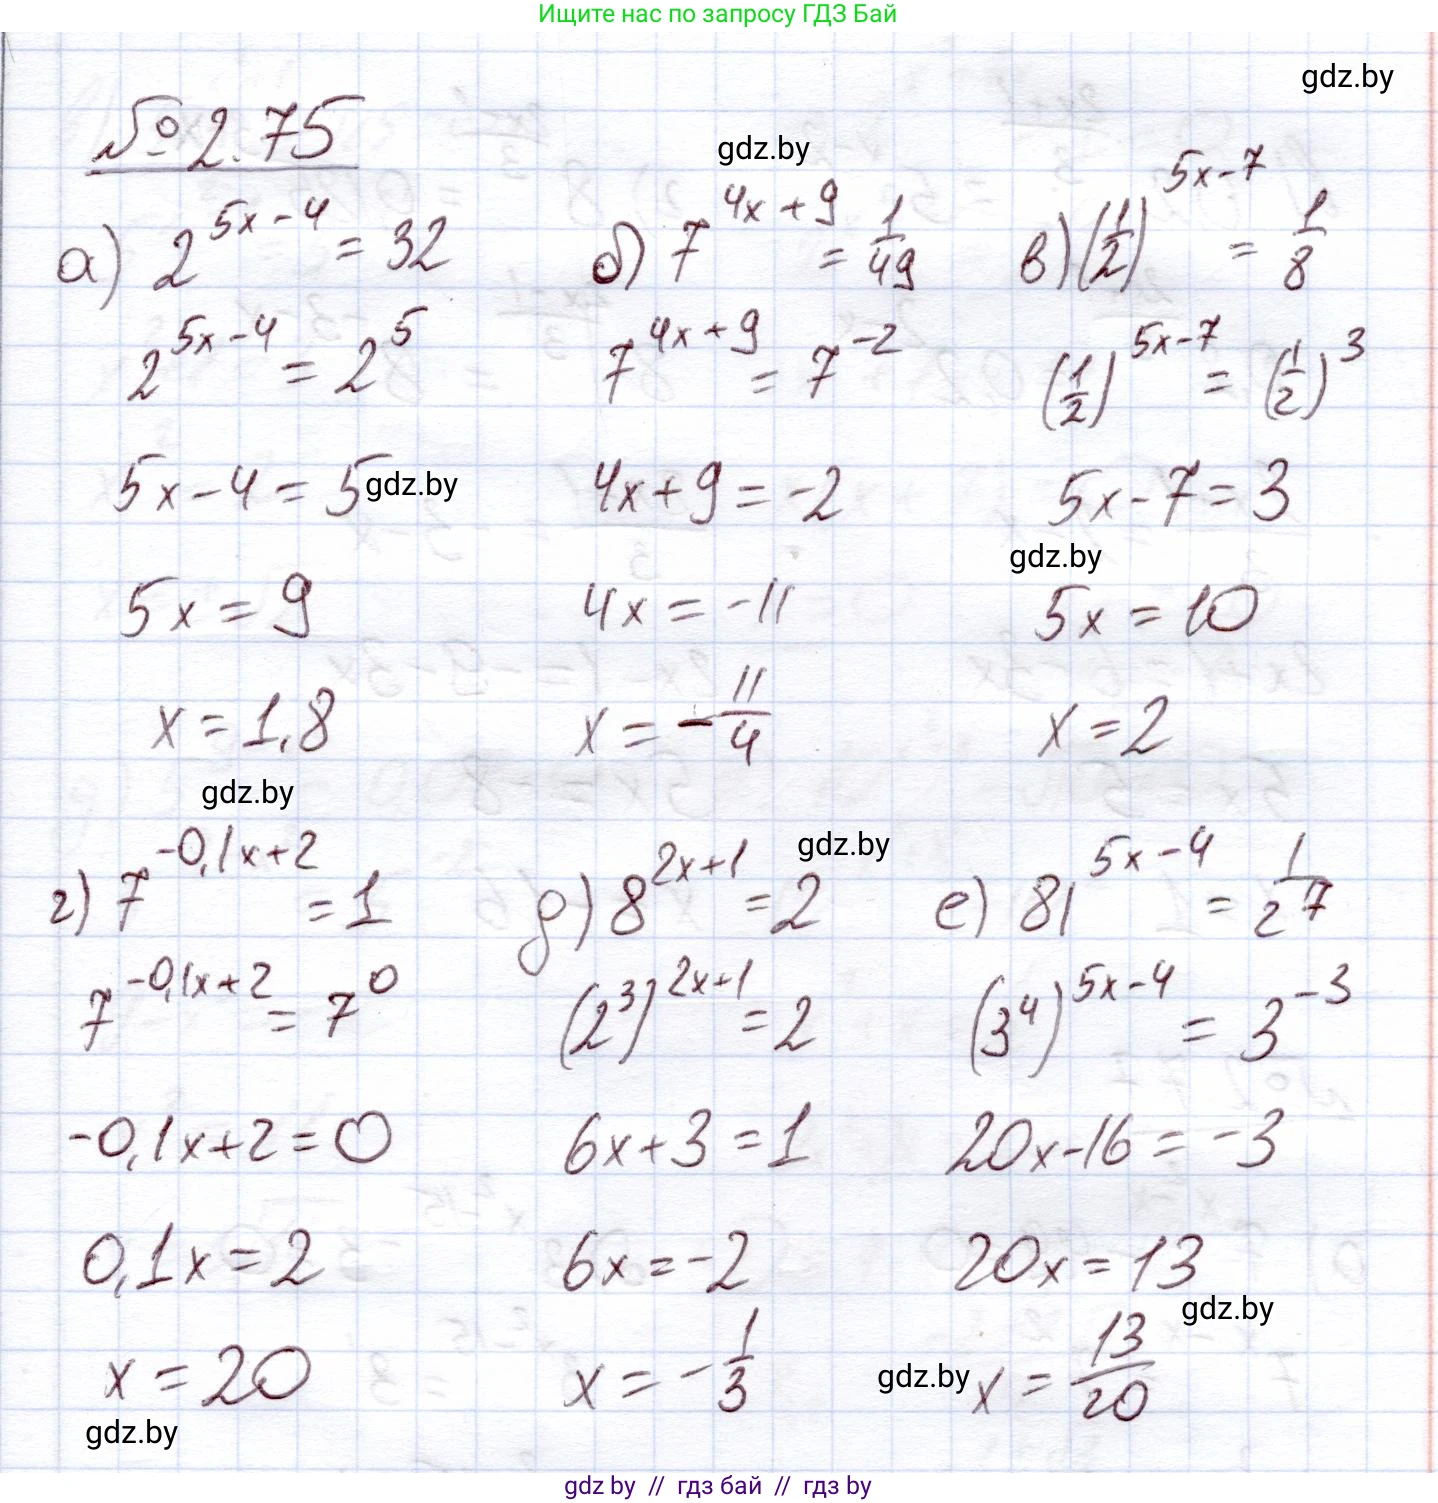 Ищите нас по запросу ГДЗ Бай
gdz.by
№ 2.75
gdz.by
а) 2^(5x-4) = 32
2^(5x-4) = 2^5
5x-4=5
gdz.by
5x=9
x=1,8
gdz.by
б) 7^(4x+9) = 1/49
7^(4x+9) = 7^(-2)
4x+9=-2
4x=-11
x=-11/4
в) (1/2)^(5x-7) = 1/8
(1/2)^(5x-7) = (1/2)^3
5x-7=3
gdz.by
5x=10
x=2
г) 7^(-0,1x+2) = 1
7^(-0,1x+2) = 7^0
-0,1x+2=0
0,1x=2
x=20
gdz.by
gdz.by
д) 8^(2x+1) = 2
(2^3)^(2x+1) = 2
6x+3=1
6x=-2
x=-1/3
е) 81^(5x-4) = 1/27
(3^4)^(5x-4) = 3^(-3)
20x-16=-3
20x=13
gdz.by
gdz.by
x=13/20
gdz by // гдз бай // гдз by